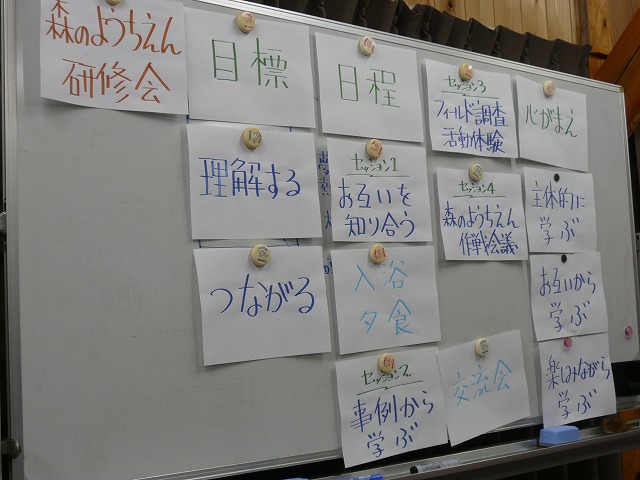 森のようちえん
研修会
目標
理解する
つながる
日程
セッション1
お互いを
知り合う
入浴
夕食
セッション2
事例から
学ぶ
セッション3
フィールド調査
活動体験
セッション4
森のようちえん
作戦会議
交流会
心がまえ
主体的に
学ぶ
お互いから
学ぶ
楽しみながら
学ぶ